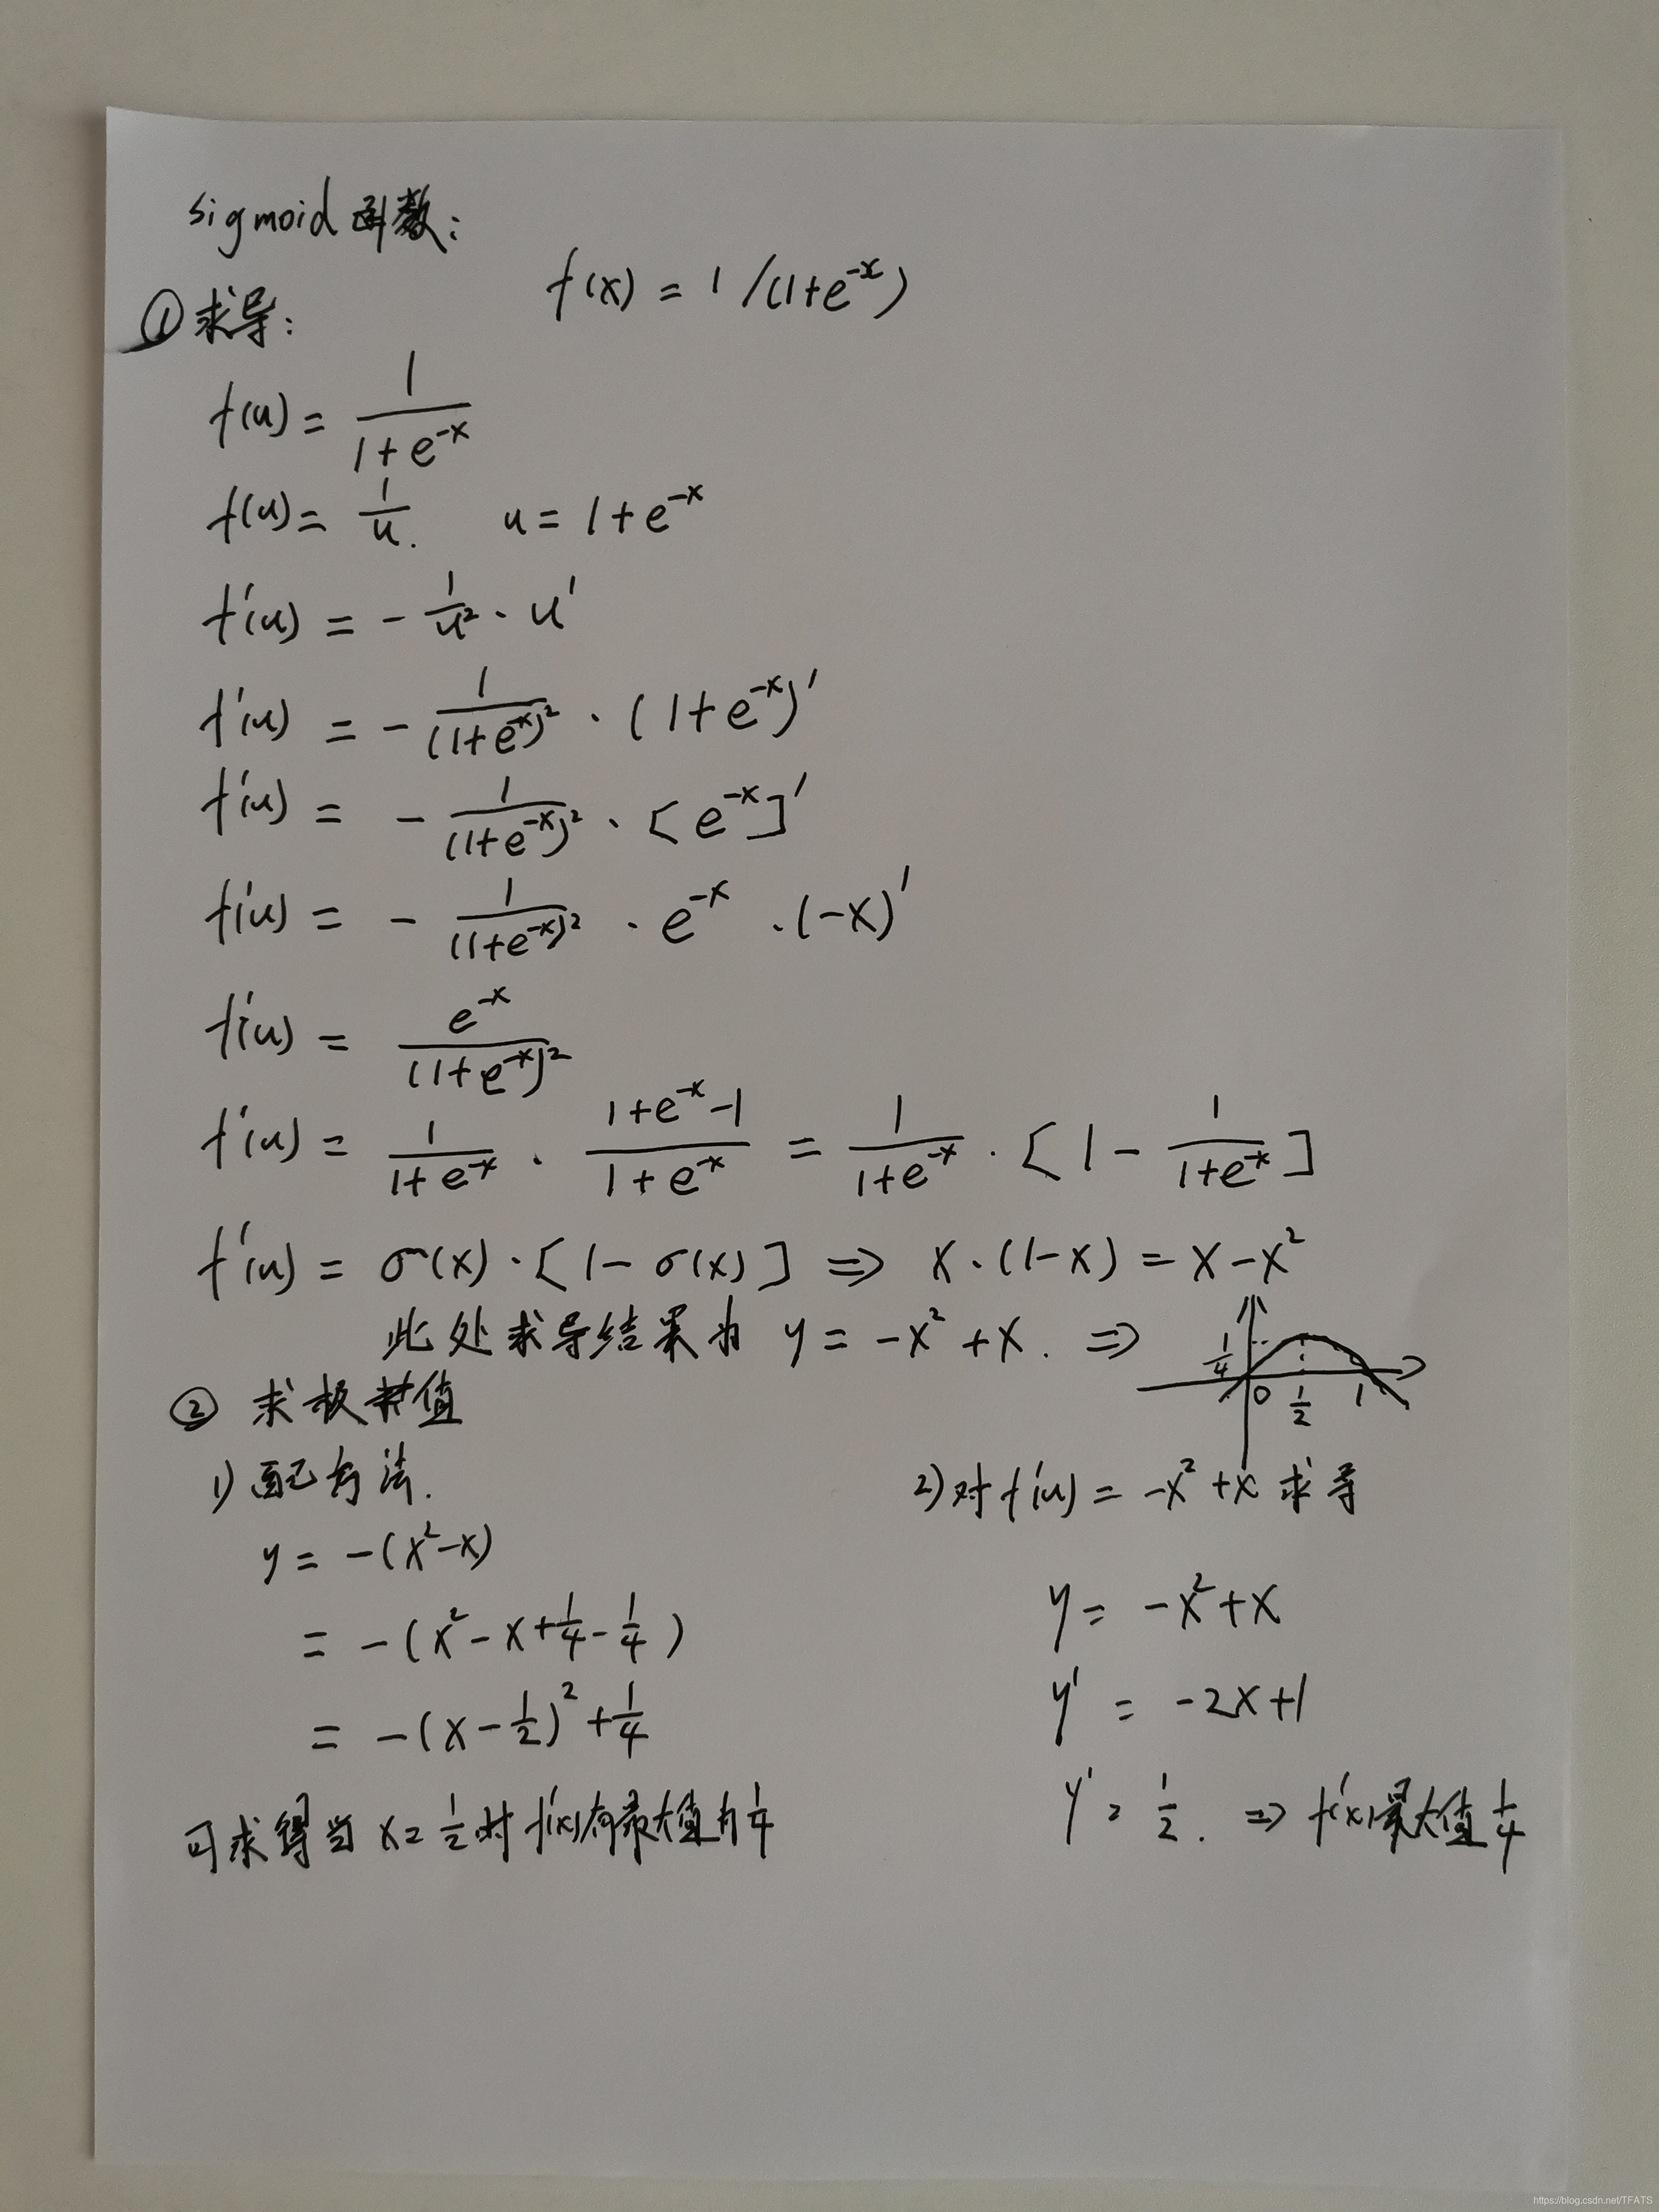 sigmoid 函数:
f(x) = 1/(1+e^{-x})
① 求导:
f(u) = \frac{1}{1+e^{-x}}
f(u) = \frac{1}{u}. u = 1+e^{-x}
f'(u) = -\frac{1}{u^2} · u'
f'(u) = -\frac{1}{(1+e^{-x})^2} · (1+e^{-x})'
f'(u) = -\frac{1}{(1+e^{-x})^2} · [e^{-x}]'
f'(u) = -\frac{1}{(1+e^{-x})^2} · e^{-x} · (-x)'
f'(u) = \frac{e^{-x}}{(1+e^{-x})^2}
f'(u) = \frac{1}{1+e^{-x}} · \frac{1+e^{-x}-1}{1+e^{-x}} = \frac{1}{1+e^{-x}} · [1-\frac{1}{1+e^{-x}}]
f'(u) = σ(x)·[1-σ(x)] ⇒ x·(1-x) = x-x^2
此处求导结果为 y = -x^2+x. ⇒
\frac{1}{4} 0 \frac{1}{2} 1
② 求极值
1) 配方法.
y = -(x^2-x)
= -(x^2-x+\frac{1}{4}-\frac{1}{4})
= -(x-\frac{1}{2})^2+\frac{1}{4}
可求得当 x=\frac{1}{2}时 f'(x)有最大值为\frac{1}{4}
2) 对 f'(u) = -x^2+x 求导
y = -x^2+x
y' = -2x+1
y' = \frac{1}{2}. ⇒ f'(x)最大值\frac{1}{4}
https://blog.csdn.net/TFATS